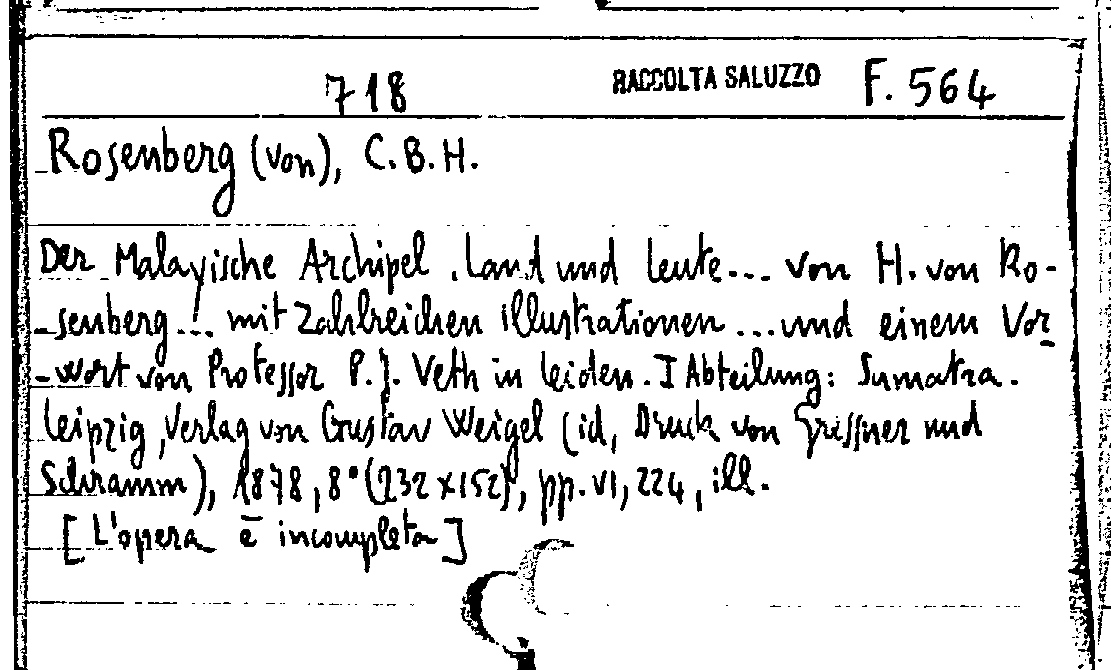 718 RACCOLTA SALUZZO F. 564
Rosenberg (von), C.B.H.
Der Malayische Archipel. Land und Leute... von H. von Ro-
-senberg... mit Zahlreichen Illustrationen ... und einem Vor-
-wort von Professor P.J. Veth in Leiden. I Abteilung: Sumatra.
Leipzig, Verlag von Gustav Weigel (id, Druck von Grissner und
Schramm), 1878, 8° (232x152), pp. VI, 224, ill.
[L'opera è incompleta]